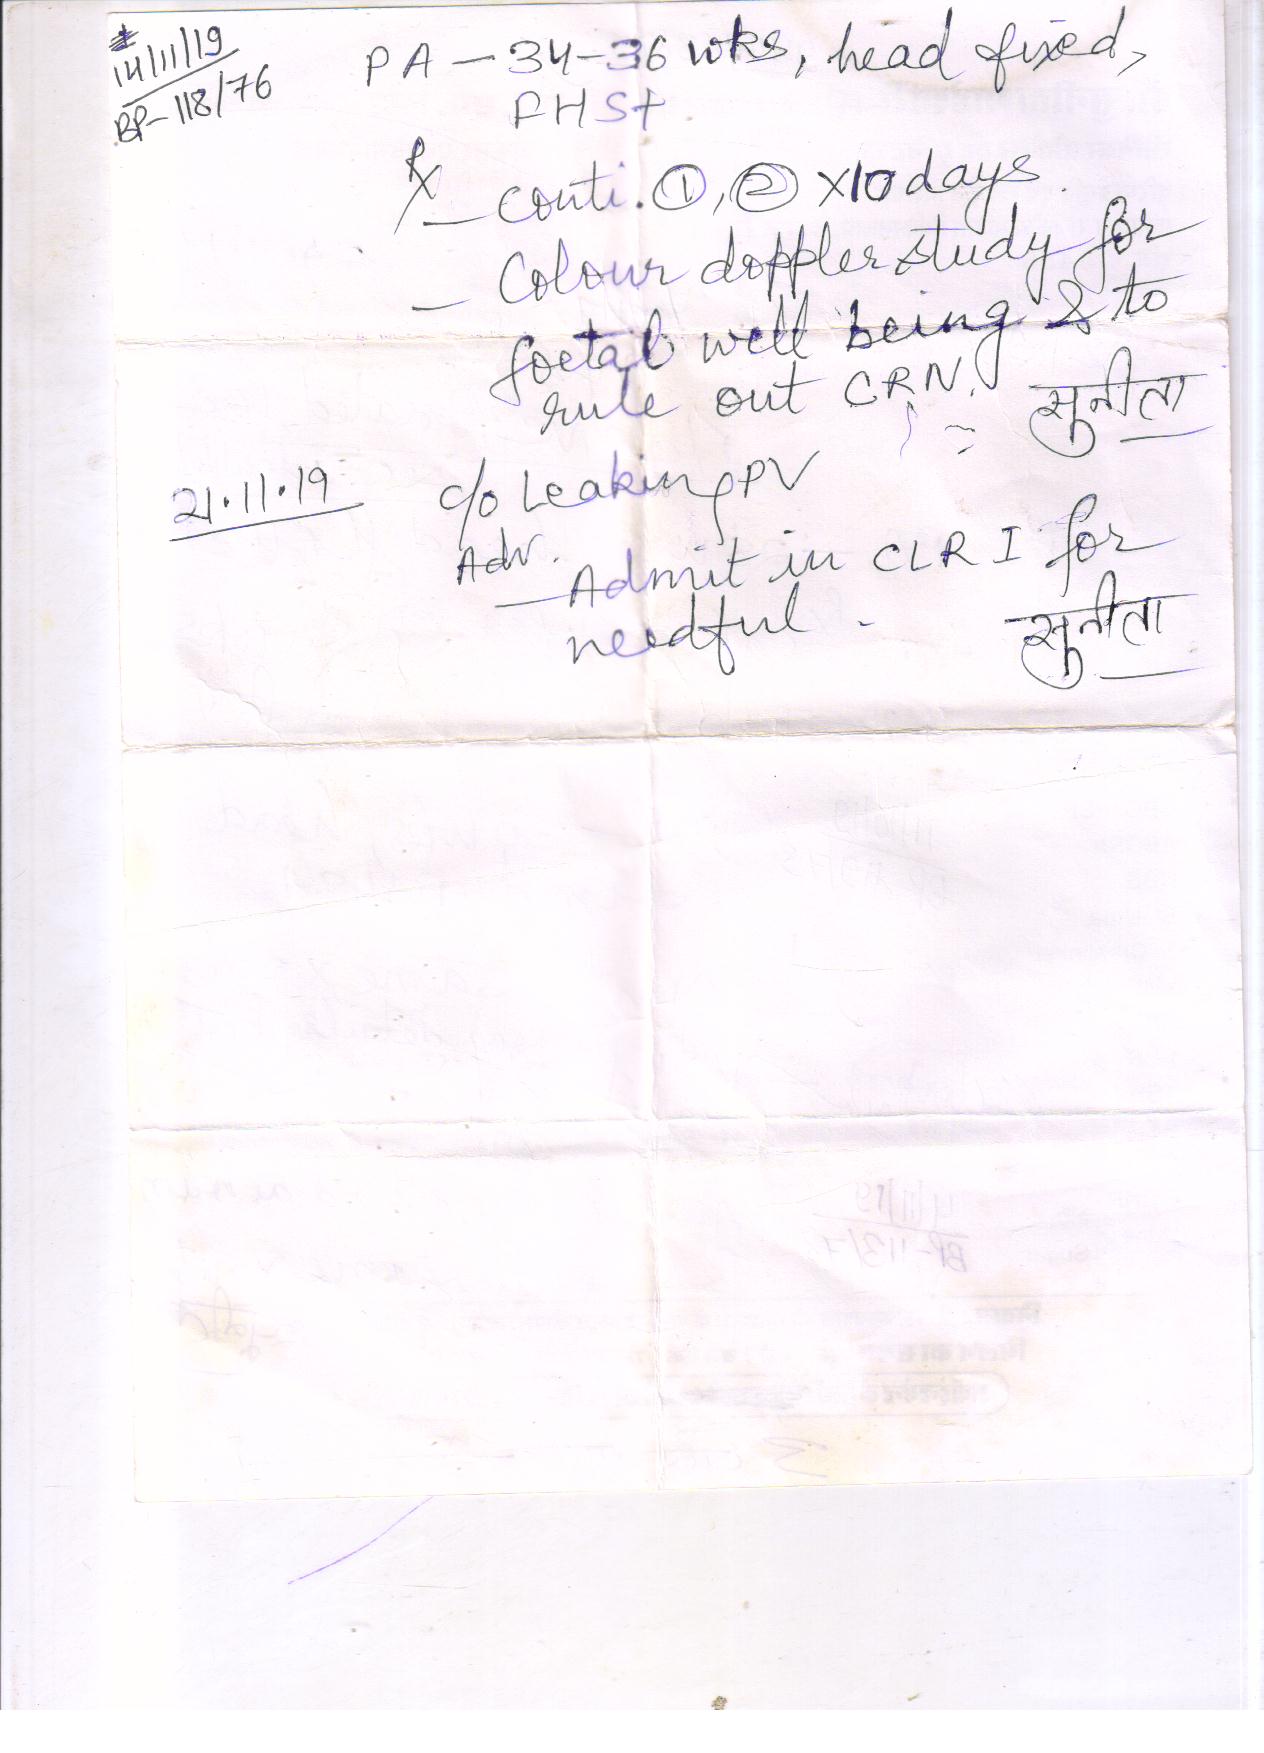 14/11/19
BP-118/76
PA - 34-36 wks, head fixed,
FHS+
Rx
- conti. ①, ② x10 days.
- Colour doppler study for
foetal well being & to
rule out CRN.
सुनीता
21.11.19
c/o Leaking PV
Adv.
- Admit in CLR I for
needful.
सुनीता